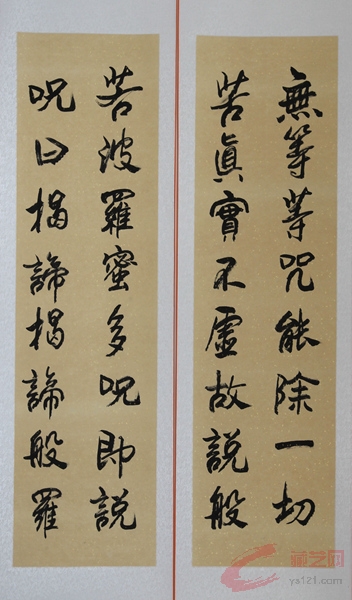 無等等呪能除一切
苦眞實不虛故說般
若波羅蜜多呪即說
呪曰揭諦揭諦般羅
藏艺网
ya121.com